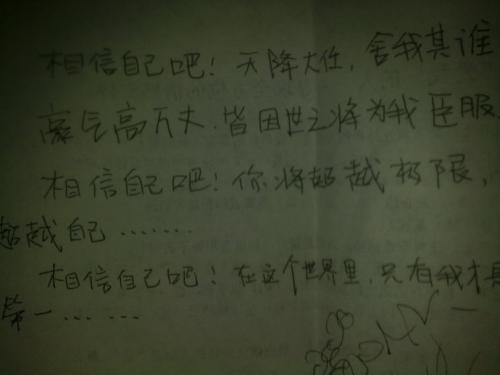 相信自己吧！天降大任，舍我其谁
豪气高万丈，皆因世之将为我臣服.
相信自己吧！你将超越极限，
超越自己……..
相信自己吧！在这个世界里，只有我才是
第一… …